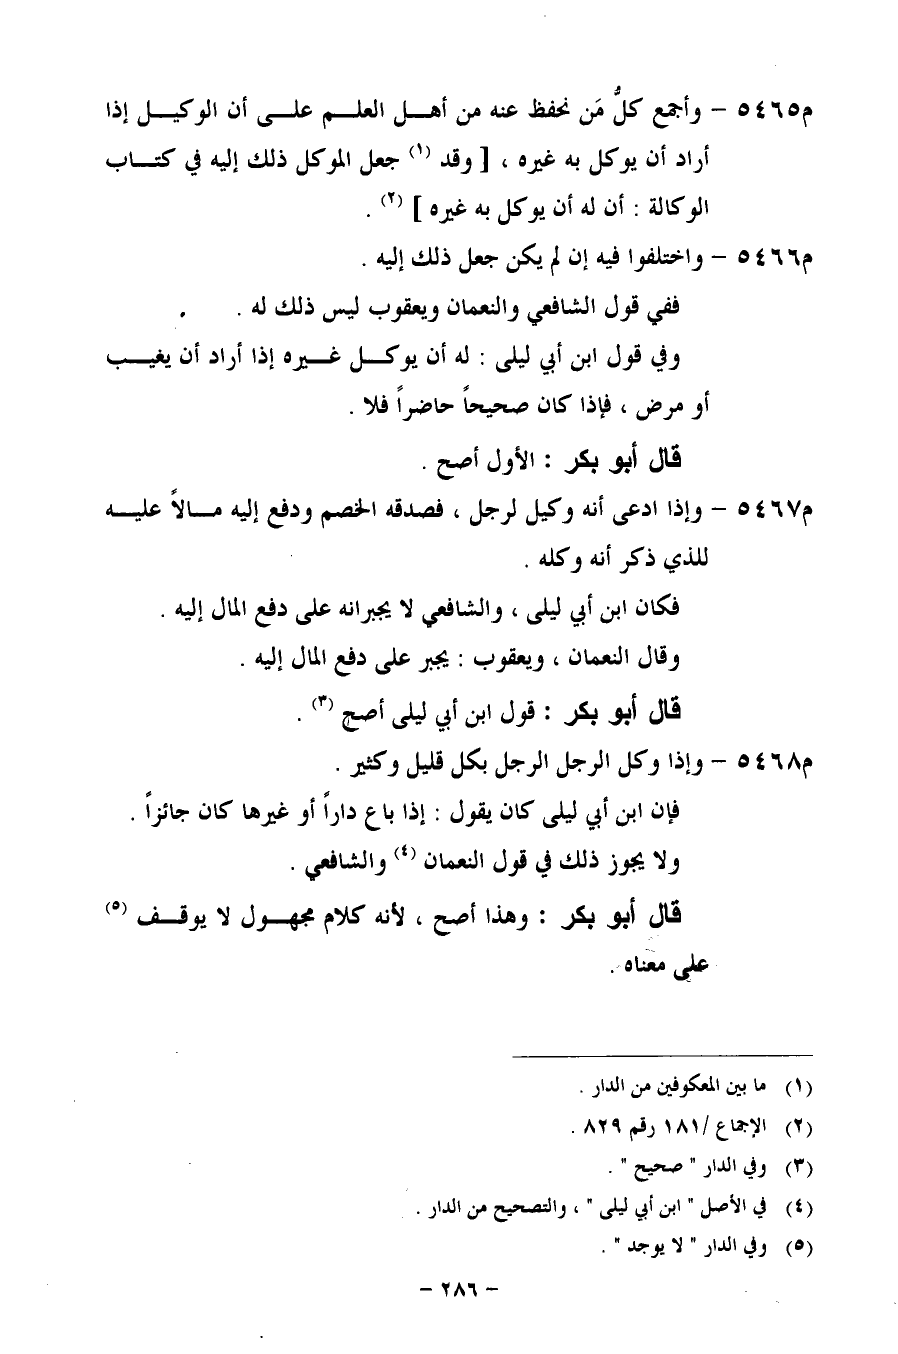 م٥٤٦٥ – وأجمع كلُّ مَن نحفظ عنه من أهـل العلـم علـى أن الوكيـل إذا
أراد أن يوكل به غيره ، [ وقد (١) جعل الموكل ذلك إليه في كتـاب
الوكالة : أن له أن يوكل به غيره ] (٢) .
م٥٤٦٦ – واختلفوا فيه إن لم يكن جعل ذلك إليه .
ففي قول الشافعي والنعمان ويعقوب ليس ذلك له .
وفي قول ابن أبي ليلى : له أن يوكـل غـيره إذا أراد أن يغيـب
أو مرض ، فإذا كان صحيحاً حاضراً فلا .
قال أبو بكر : الأول أصح .
م٥٤٦٧ – وإذا ادعى أنه وكيل لرجل ، فصدقه الخصم ودفع إليه مـالاً عليـه
للذي ذكر أنه وكله .
فكان ابن أبي ليلى ، والشافعي لا يجبرانه على دفع المال إليه .
وقال النعمان ، ويعقوب : يجبر على دفع المال إليه .
قال أبو بكر : قول ابن أبي ليلى أصح (٣) .
م٥٤٦٨ – وإذا وكل الرجل الرجل بكل قليل وكثير .
فإن ابن أبي ليلى كان يقول : إذا باع داراً أو غيرها كان جائزاً .
ولا يجوز ذلك في قول النعمان (٤) والشافعي .
قال أبو بكر : وهذا أصح ، لأنه كلام مجهـول لا يوقـف (٥)
على معناه .
(١) ما بين المعكوفين من الدار .
(٢) الإجماع /١٨١ رقم ٨٢٩ .
(٣) وفي الدار " صحيح " .
(٤) في الأصل " ابن أبي ليلى " ، والتصحيح من الدار .
(٥) وفي الدار " لا يوجد " .
– ٢٨٦ –